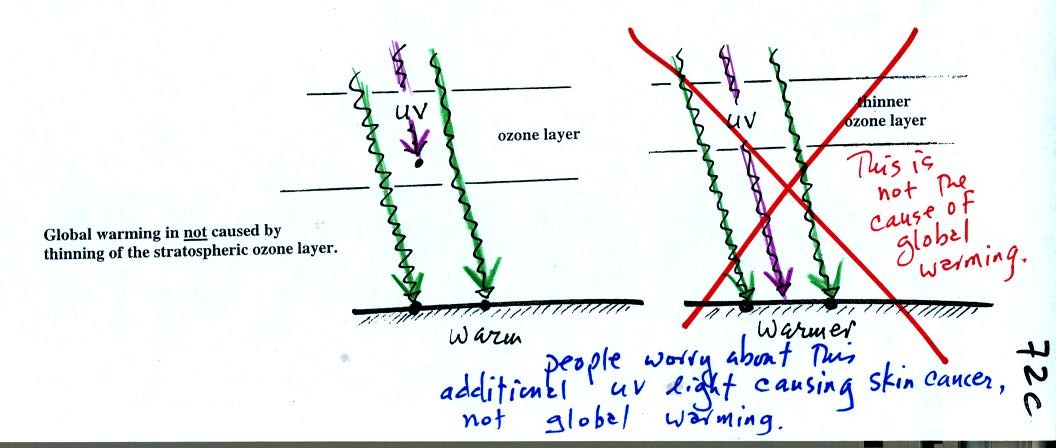 uv
ozone layer
Global warming in not caused by
thinning of the stratospheric ozone layer.
warm
uv
thinner
ozone layer
This is
not the
cause of
global
warming.
warmer
people worry about this
additional uv light causing skin cancer,
not global warming.
72c